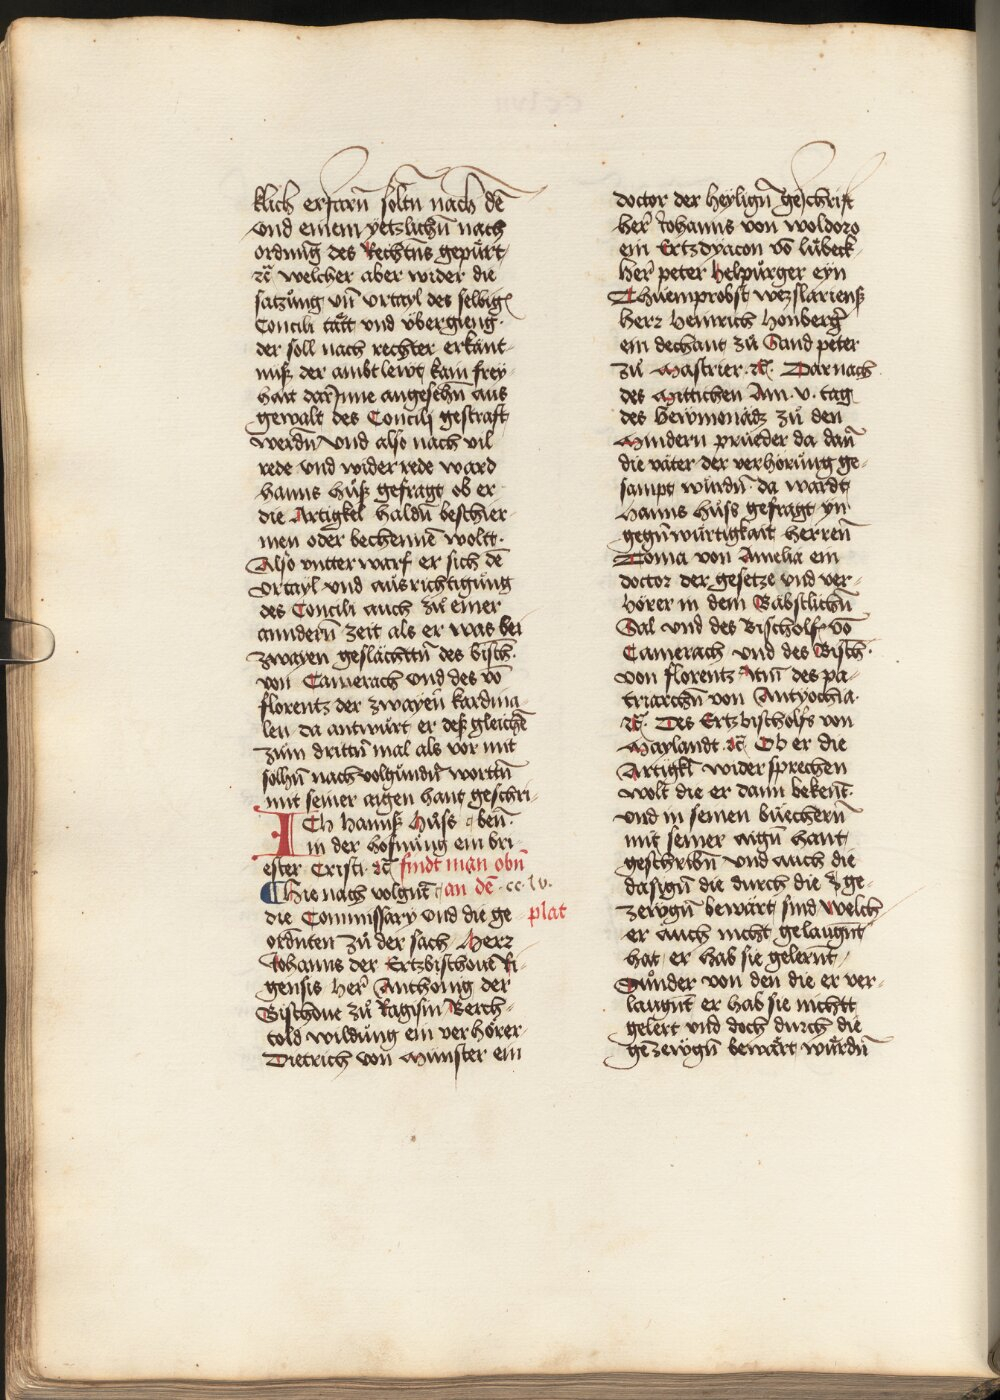 klich erfarn̄ soltn̄ nach dē
vnd einem yetzlichn̄ nach
ordnu͞g des Rechtn̄s gepürt
⁊c̄ welcher aber wider die
satzůng vn̄ vrtayl des selbig
Concili tätt vnd vbergieng.
der soll nach rechter erkant-
nuß der ambtlewt kain frey
hait dar Inne angesehn̄ aus
gewalt des Concilj gestraft
werdn̄ vnd also nach vil
rede vnd wider rede ward
hanns hůß gefragt ob er
die Artigkel haldn̄ beschier
men oder bechennē woltt.
Also vntter warf er sich dē
vrtayl vnd ausrichtigůng
des Concili auch zů einer
anndern̄ zeit als er was bei
zwayen geslächttn̄ des bisch.
von Camerach vnd des vō
florentz der zwayen̄ kardina-
len da antwůrt er deß gleichē
zům drittn̄ mal als vor mit
solhn̄ nachvolgůndn̄ worttn̄
mit seiner aigen hant geschri-
ICh hannß hůss ben̄
in der hofnůng ein bri
ester Cristi ⁊c̄ findt man obn̄
an dē cc lv.
plat
Hie nach volgnt̄
die Commissary vnd die ge
ordnten zů der sach Herr
Johanns der Ertzbischoue Ri-
gensis her̄ Anthonig der
Bischoue zů Ragisin Berch-
told wildůng ein verhörer
Dietrich von Munster ein
doctor der heylign̄ geschrift
her̄ Johanns von woldoro
ein Ertzdyacon vō lübeck
her̄ peter helpůrger eyn
Thůemprobst wezslarienß
herr heinrich honberḡ
ein dechant zů Sand peter
zů Mastrier ⁊c̄. Darnach
des Mittichen Am .v. tag
des hewmonadz zů den
Mindern prueder da dan̄
die väter der verhörůng ge-
sampt wurdn̄ da wardt
hanns hůss gefragt yn
gegn̄würtigkait herren̄
Toma von Amelia ein
doctor der gesetze vnd ver-
hörer in dem Bäbstlichn̄
Sal vnd des Bischolfs vō
Camerach vnd des Bisch.
von florentz Itm̄ des pa-
triarchn̄ von Antyochia.
⁊c̄. Des Ertzbischolfs von
Maylandt ⁊c̄ Ob er die
Artigkl̄ wider sprechen
wolt die er dann bekent̄.
vnd in seinen büechern̄
mit seiner aign̄ hant
geschribn̄ vnd auch die
dasign̄ die durch die ge-
zewgn̄ bewärt sind welch
er auch nicht gelaugnt
hat er hab sie gelernt̄
Sůnder von den die er ver-
laugnt er hab sie nichtt
gelert vnd doch durch die
gezewgn̄ bewärt wůrdn̄